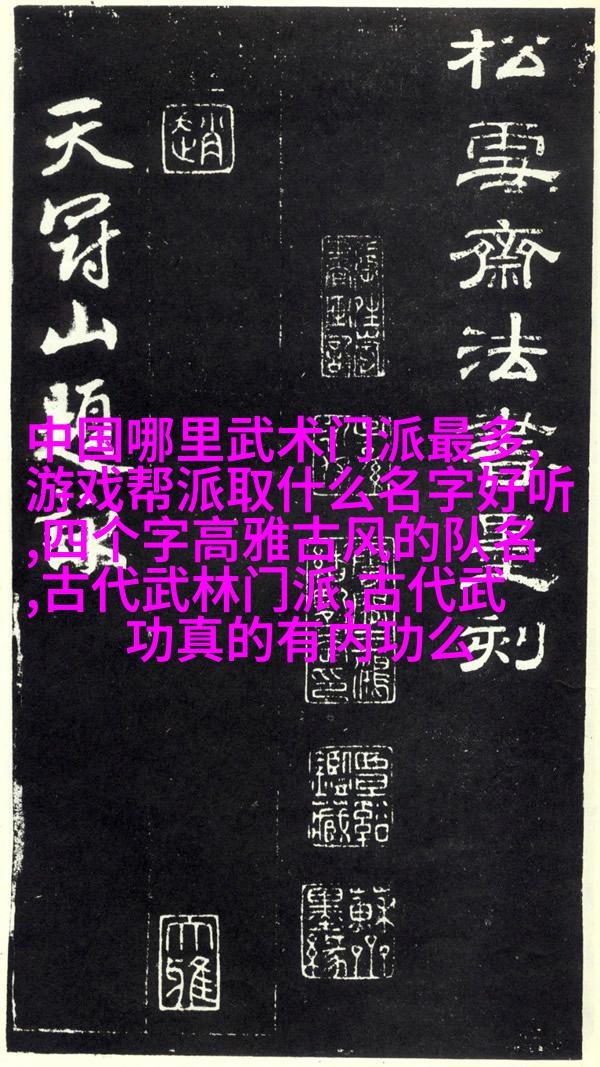 松雪齋法書墨刻
天冠山題
趙
覃谿
鑑藏
大雅
中国哪里武术门派最多,
游戏帮派取什么名字好听
,四个字高雅古风的队名
,古代武林门派,古代武
功真的有内功么